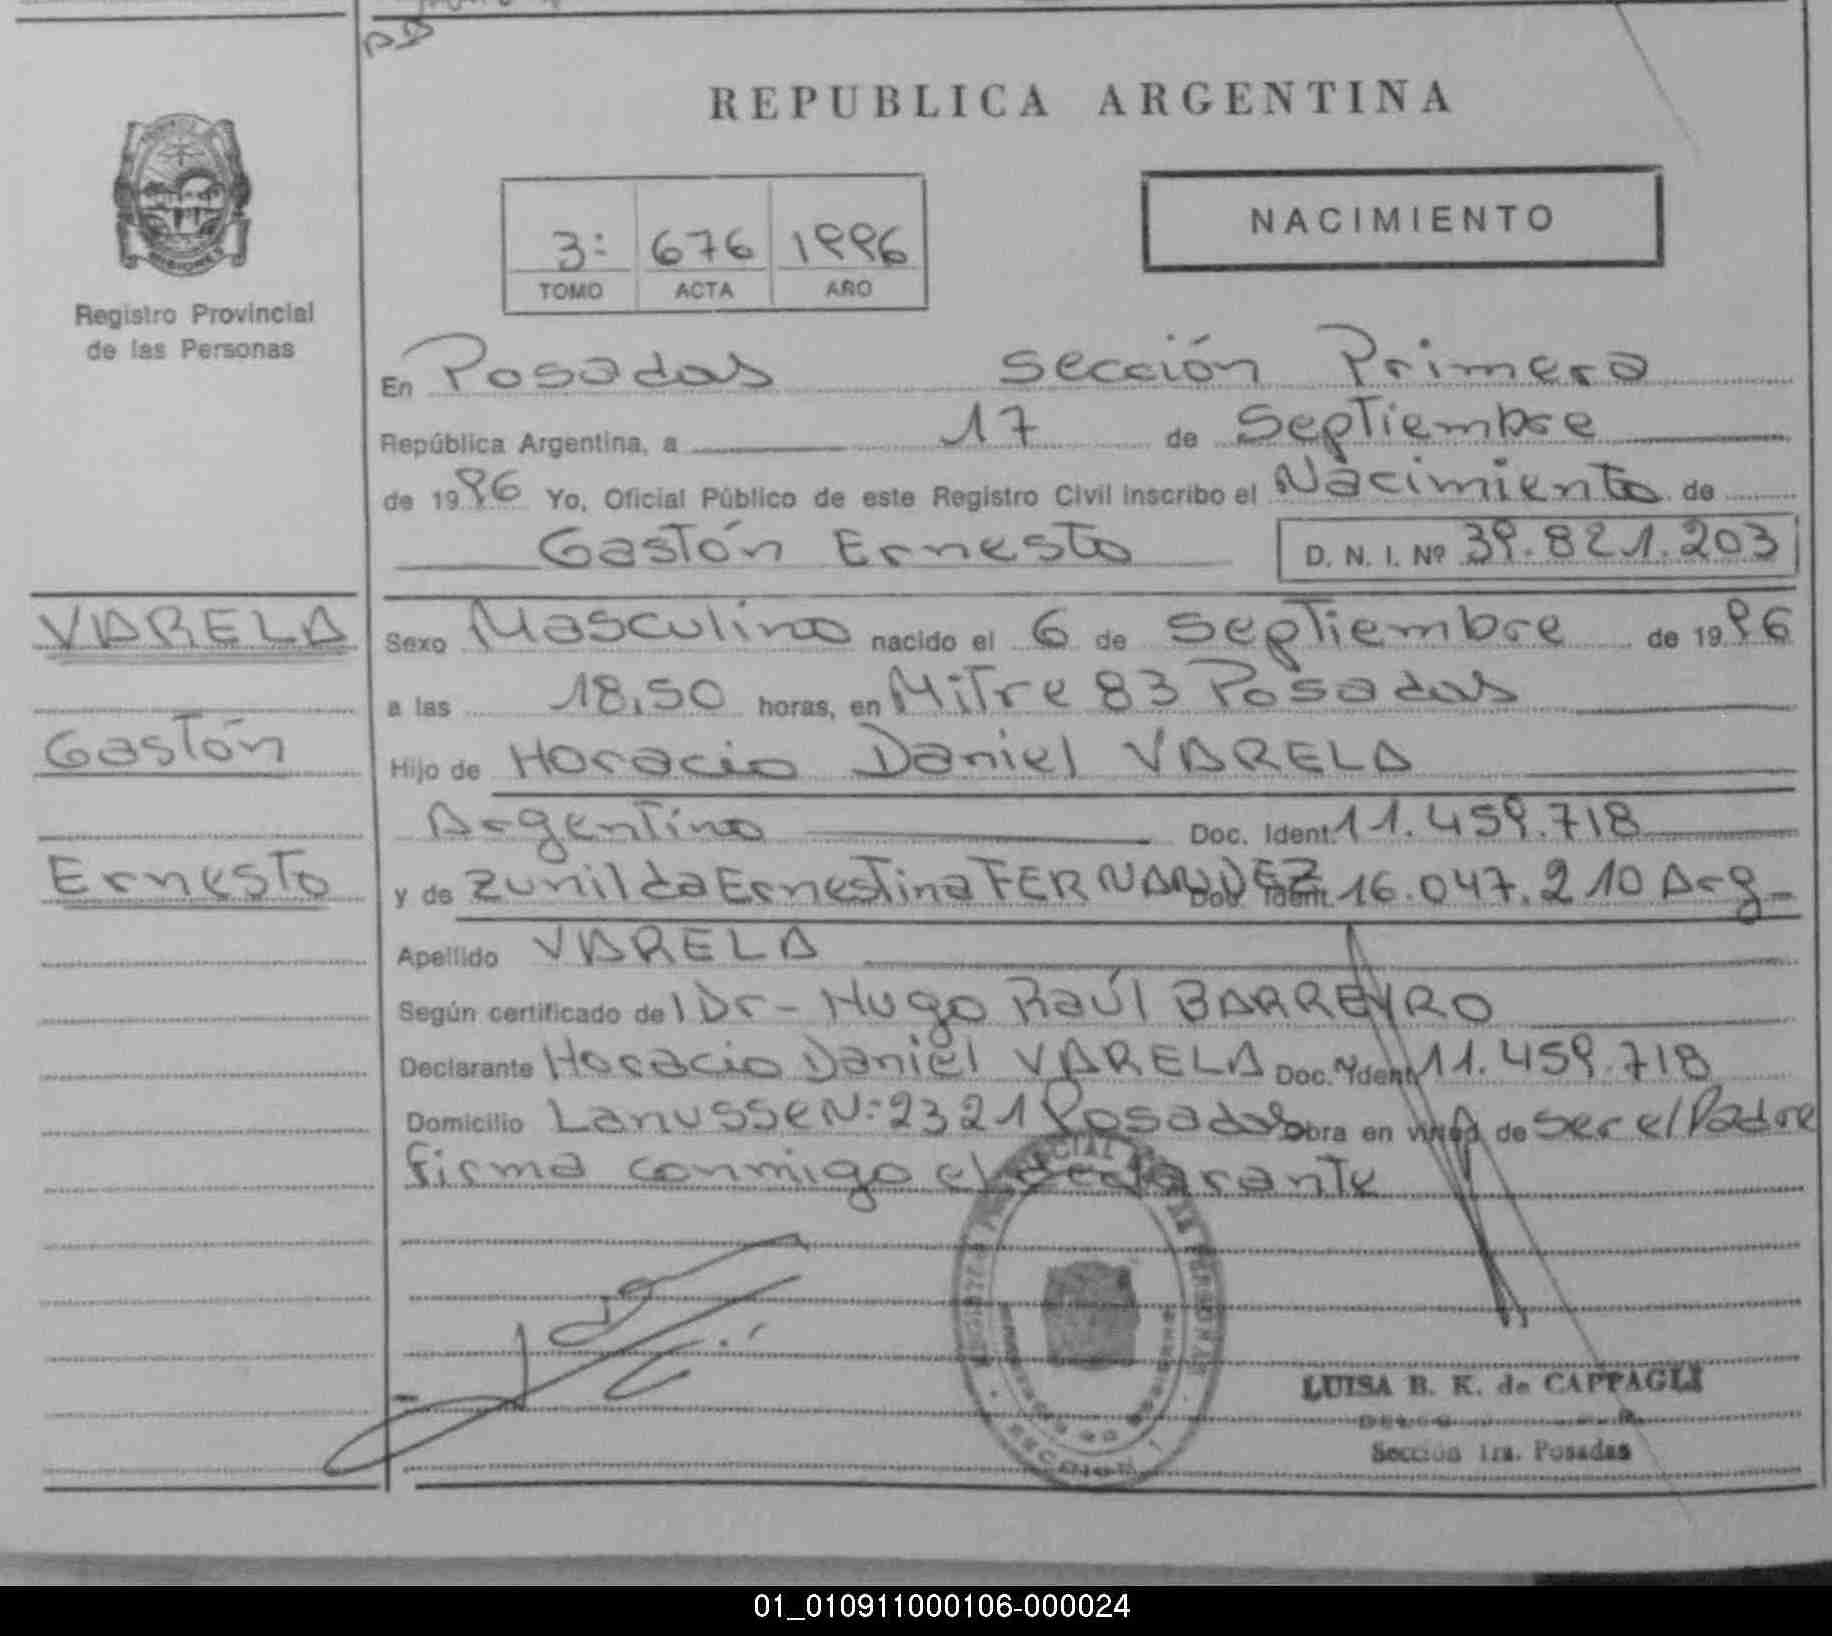 REPUBLICA ARGENTINA
MISIONES
Registro Provincial
de las Personas
3: 676 1996
TOMO ACTA AÑO
NACIMIENTO
En Posadas sección Primera
República Argentina, a 17 de Septiembre
de 1996 Yo, Oficial Público de este Registro Civil inscribo el Nacimiento de
Gastón Ernesto D. N. I. Nº 39.821.203
VARELA
Gastón
Ernesto
Sexo Masculino nacido el 6 de Septiembre de 1996
a las 18,50 horas, en Mitre 83 Posadas
Hijo de Horacio Daniel VARELA
Argentino Doc. Ident. 11.459.718
y de Zunilda Ernestina FERNANDEZ Doc. Ident. 16.047.210 Arg-
Apellido VARELA
Según certificado de l Dr- Hugo Raúl BARREYRO
Declarante Horacio Daniel VARELA Doc. Ydent. 11.459.718
Domicilio Lanusse N:2321 Posadas Obra en virtud de ser el Padre
firma conmigo el declarante
LUISA B. K. de CAPPAGLI
Sección 1ra. Posadas
01_010911000106-000024